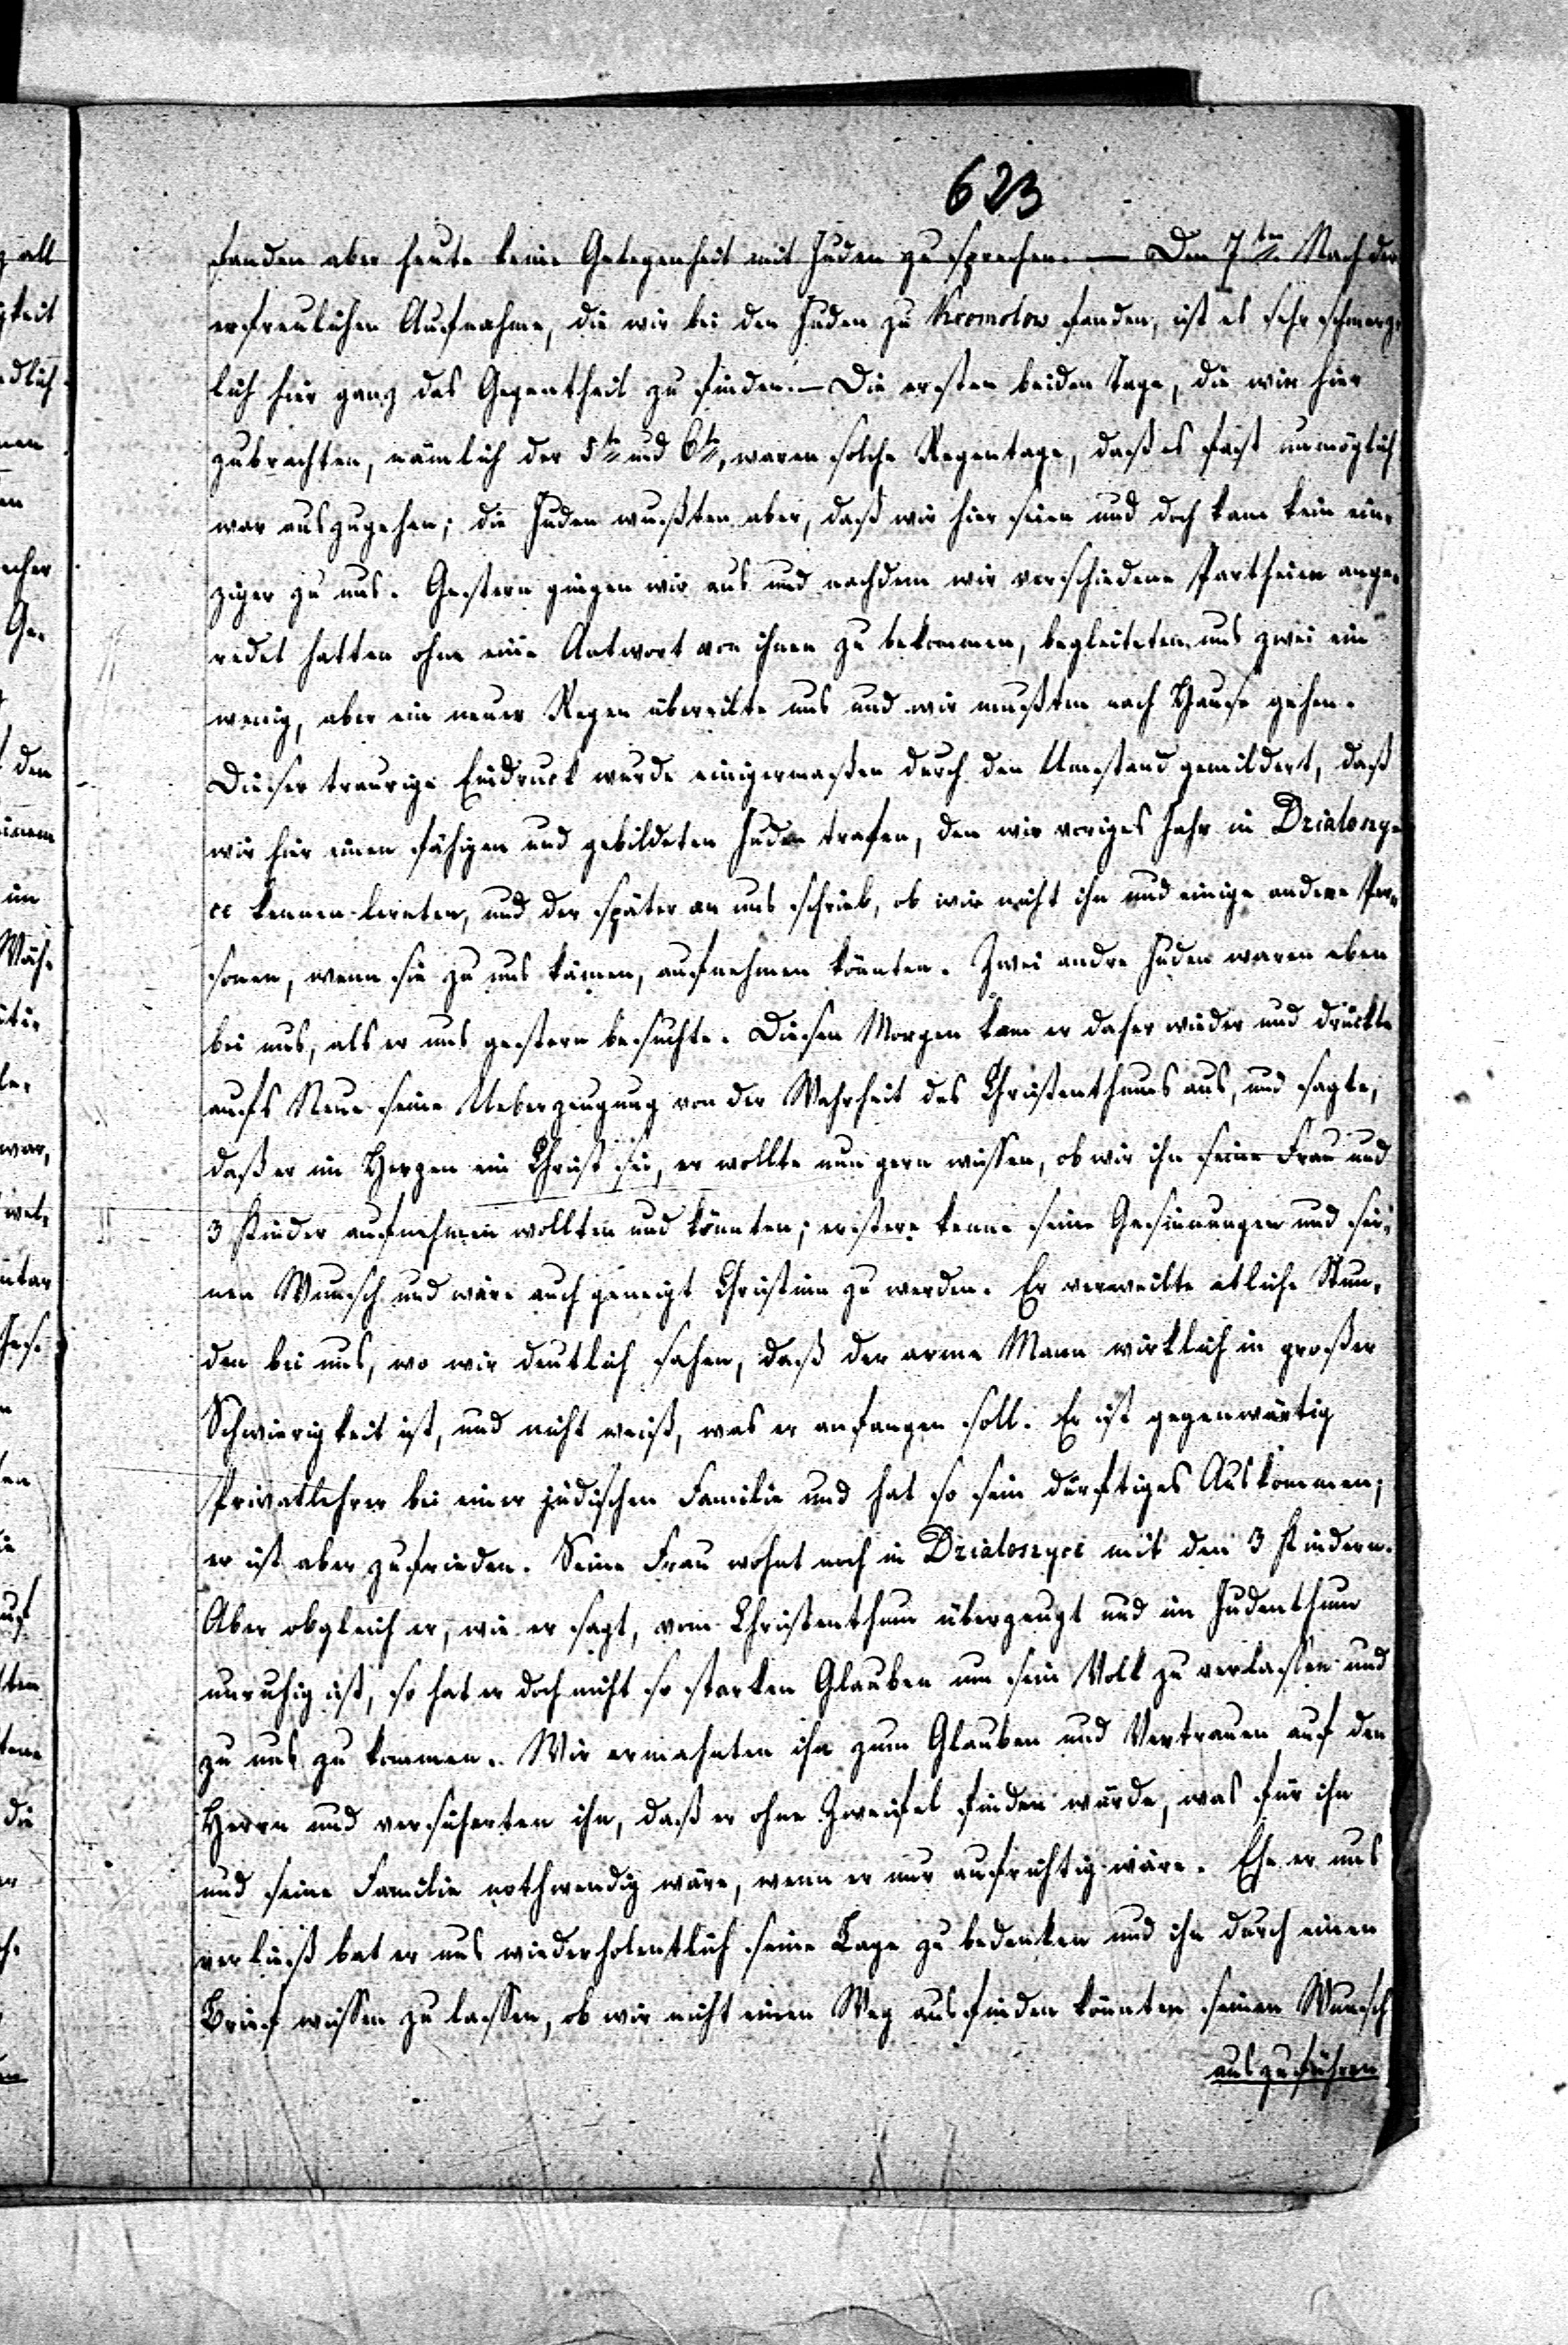 623
fanden aber heute keine Gelegenheit mit Juden zu sprechen. — Den 7ten Nach der
erfreulichen Aufnahme, die wir bei den Juden zu Kromolow fanden, ist es sehr schmerz-
lich hier ganz das Gegentheil zu finden. — Die ersten beiden Tage, die wir hier
zubrachten, nämlich der 5te und 6te, waren solche Regentage, daß es fast unmöglich
war auszugehen; die Juden wußten aber, daß wir hier seien und doch kam kein ein-
ziger zu uns. Gestern gingen wir aus und nachdem wir verschiedene Partheien ange-
redet hatten ohne eine Antwort von ihnen zu bekommen, begleiteten uns zwei ein
wenig, aber ein neuer Regen übereilte uns und wir mußten nach Hause gehen.
Dieser traurige Eindruck wurde einigermaßen durch den Umstand gemildert, daß
wir hier einen fähigen und gebildeten Juden trafen, den wir voriges Jahr in Dzialoszy-
ce kennen lernten, und der später an uns schrieb, ob wir nicht ihn und einige andere Per-
sonen, wenn sie zu uns kämen, aufnehmen könnten. Zwei andre Juden waren eben
bei uns, als er uns gestern besuchte. Diesen Morgen kam er daher wieder und drückte
aufs Neue seine Ueberzeugung von der Wahrheit des Christenthums aus, und sagte,
daß er im Herzen ein Christ sei, er wollte nun gern wissen, ob wir ihn seine Frau und
3 Kinder aufnehmen wollten und könnten; erstere kenne seine Gesinnungen und sei-
nen Wunsch und wäre auch geneigt Christin zu werden. Er verweilte etliche Stun-
den bei uns, wo wir deutlich sahen, daß der arme Mann wirklich in großer
Schwierigkeit ist, und nicht weiß, was er anfangen soll. Er ist gegenwärtig
Privatlehrer bei einer jüdischen Familie und hat so sein dürftiges Auskommen;
er ist aber zufrieden. Seine Frau wohnt noch in Dzialoszyce mit den 3 Kindern.
Aber obgleich er, wie er sagt, vom Christenthum überzeugt und im Judenthum
unruhig ist, so hat er doch nicht so starken Glauben um sein Volk zu verlassen und
zu uns zu kommen. Wir ermahnten ihn zum Glauben und Vertrauen auf den
Herrn und versicherten ihn, daß er ohne Zweifel finden würde, was für ihn
und seine Familie nothwendig wäre, wenn er nur aufrichtig wäre. Ehe er uns
verließ bat er uns wiederholentlich seine Lage zu bedenken und ihn durch einen
Brief wissen zu lassen, ob wir nicht einen Weg ausfinden könnten seinen Wunsch
auszuführen